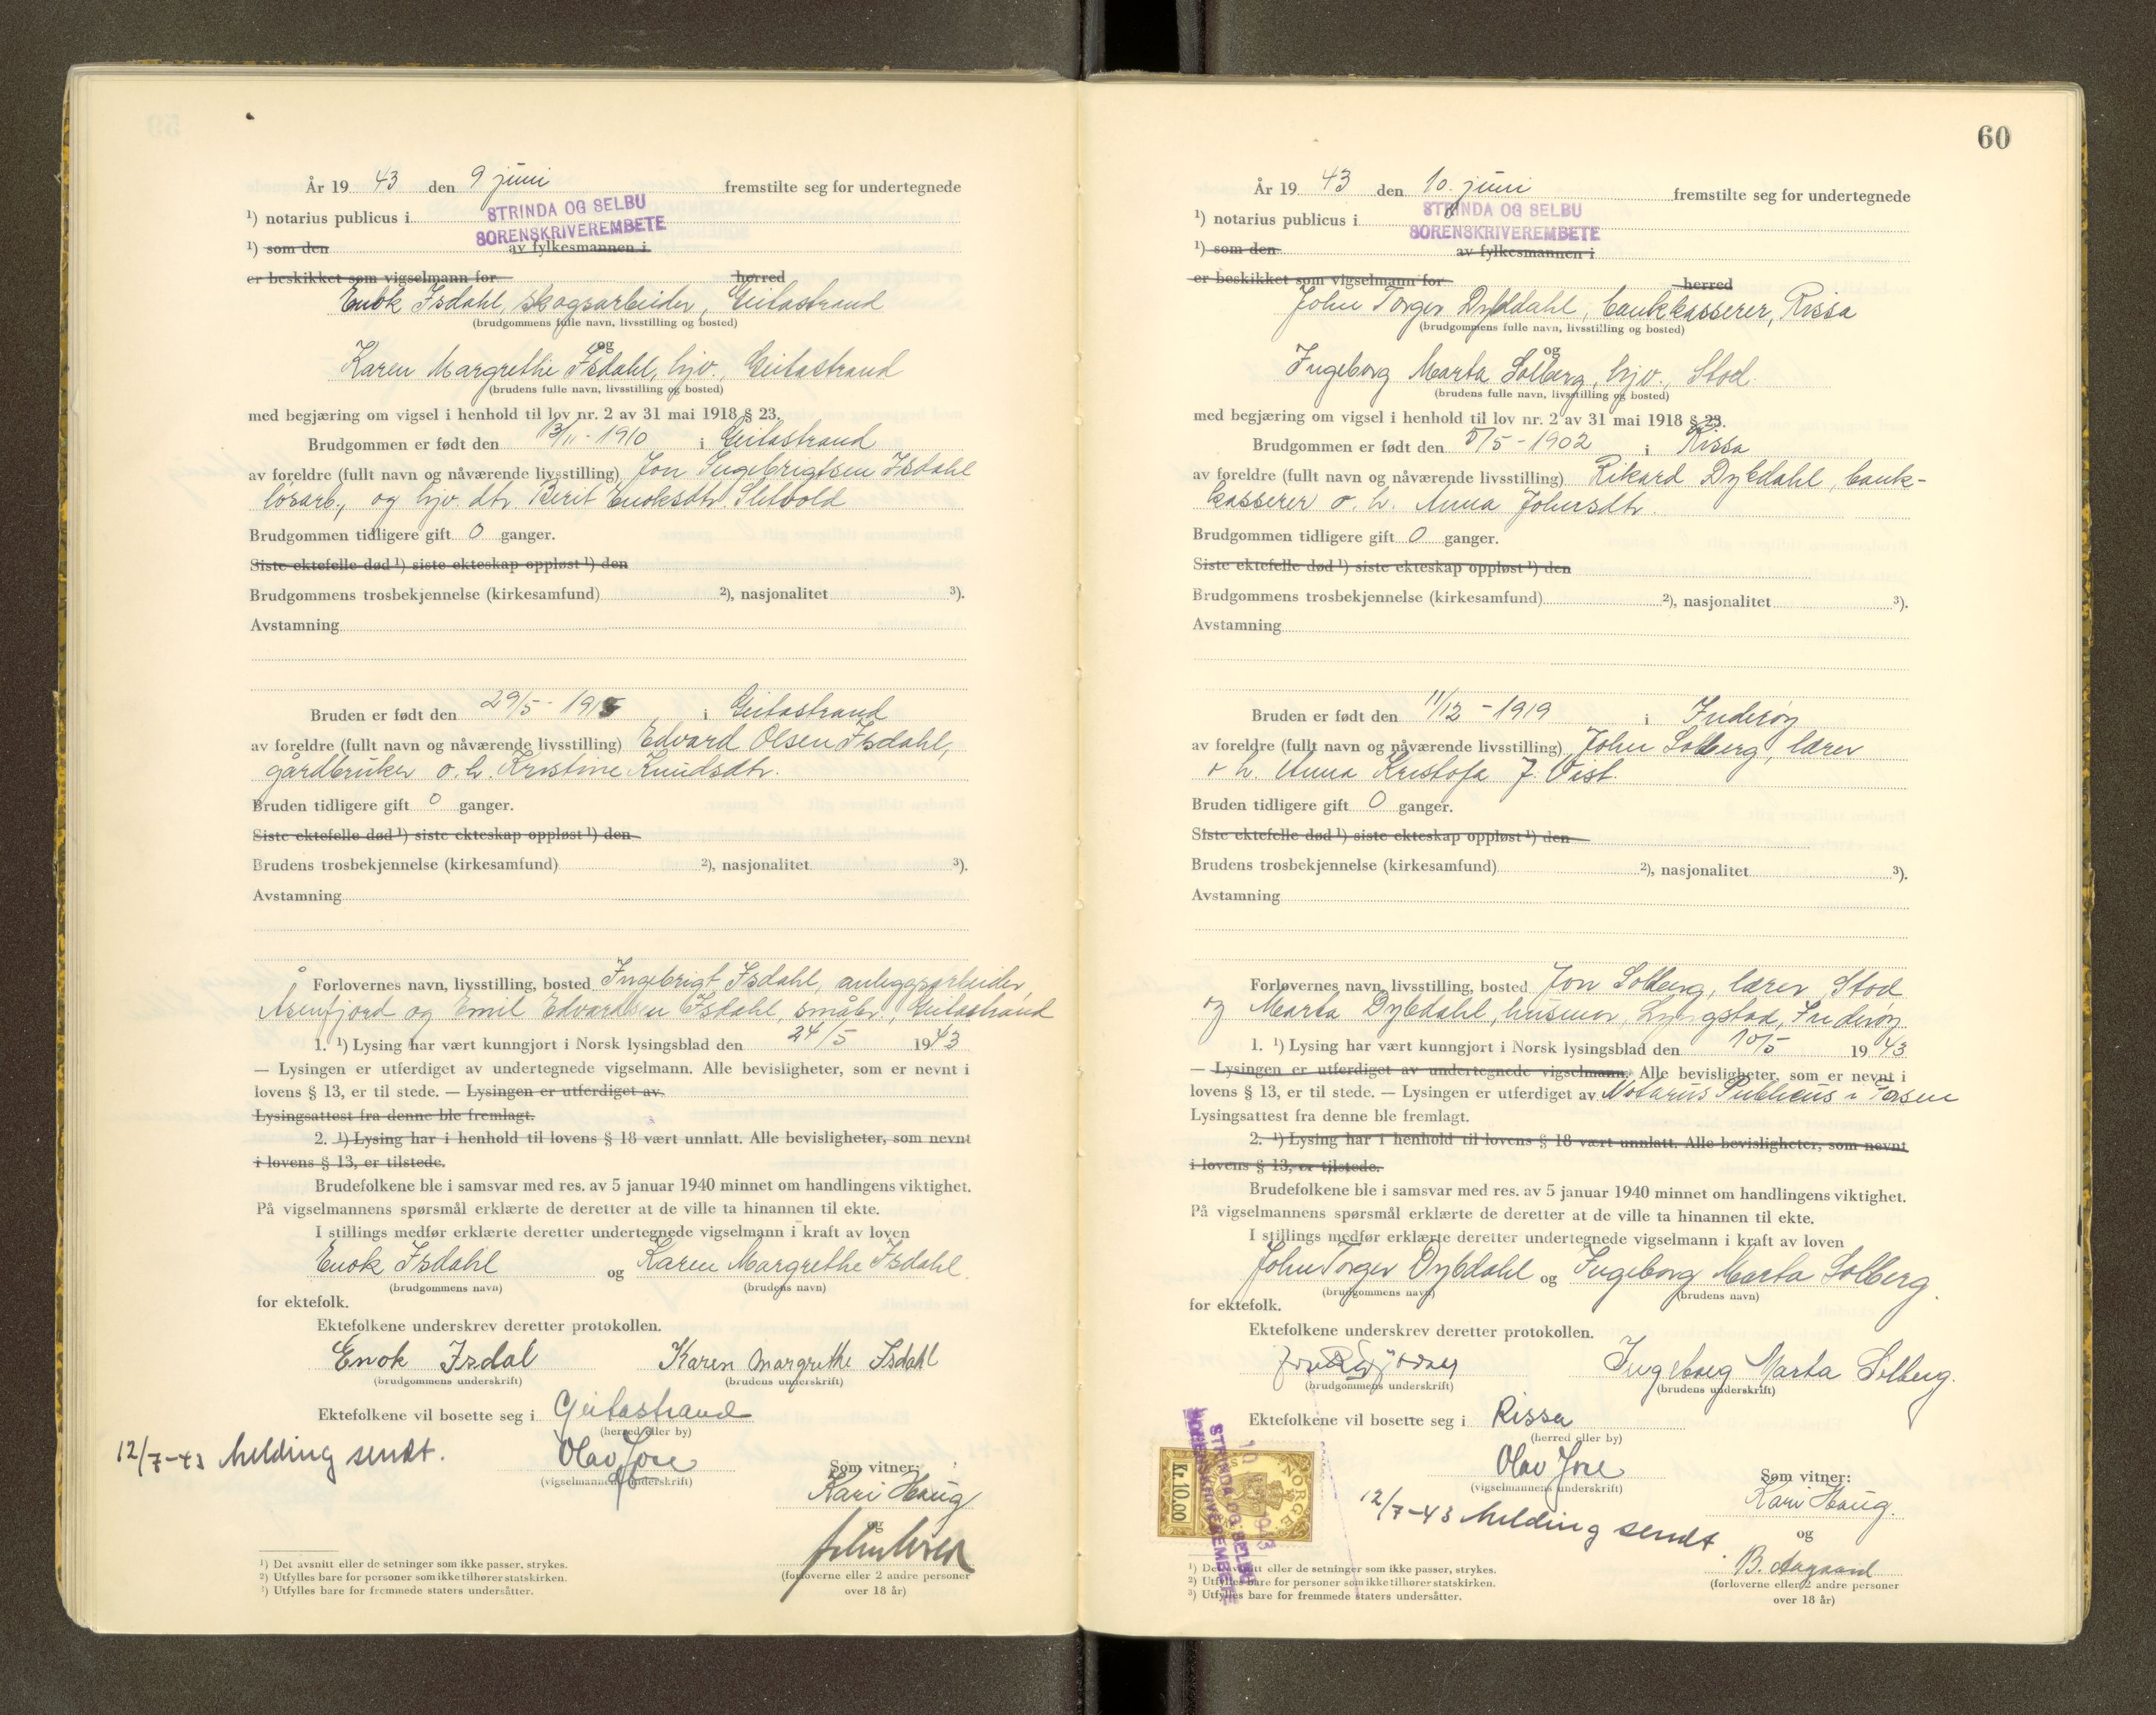 År 19 43 den 9 juni fremstilte seg for undertegnede
¹) notarius publicus i STRINDA OG SELBU
SORENSKRIVEREMBETE
¹) som den av fylkesmannen i
er beskikket som vigselmann for herred
Enok Isdahl, skogsarbeider, Geitastrand
(brudgommens fulle navn, livsstilling og bosted)
og
Karen Margrethe Isdahl, hjv., Geitastrand
(brudens fulle navn, livsstilling og bosted)
med begjæring om vigsel i henhold til lov nr. 2 av 31 mai 1918 § 23.
Brudgommen er født den 13/11-1910 i Geitastrand
av foreldre (fullt navn og nåværende livsstilling) Jon Ingebrigtsen Isdahl
løsarb., og hjv. dtr. Berit Enoksdtr.
Brudgommen tidligere gift 0 ganger.
Siste ektefelle død ¹) siste ekteskap oppløst ¹) den
Brudgommens trosbekjennelse (kirkesamfund) ²), nasjonalitet ³).
Avstamning
Bruden er født den 29/5-1915 i Geitastrand
av foreldre (fullt navn og nåværende livsstilling) Edvard Olsen Isdahl,
gårdbruker o. h. Kristine Knudsdtr.
Bruden tidligere gift 0 ganger.
Siste ektefelle død ¹) siste ekteskap oppløst ¹) den
Brudens trosbekjennelse (kirkesamfund) ²), nasjonalitet ³).
Avstamning
Forlovernes navn, livsstilling, bosted Ingebrigt Isdahl, anleggsarbeider,
Åsenfjord og Emil Edvardsen Isdahl, småbr., Geitastrand
1. ¹) Lysing har vært kunngjort i Norsk lysingsblad den 24/5 1943
— Lysingen er utferdiget av undertegnede vigselmann. Alle bevisligheter, som er nevnt i
lovens § 13, er til stede. — Lysingen er utferdiget av
Lysingsattest fra denne ble fremlagt.
2. ¹) Lysing har i henhold til lovens § 18 vært unnlatt. Alle bevisligheter, som nevnt
i lovens § 13, er tilstede.
Brudefolkene ble i samsvar med res. av 5 januar 1940 minnet om handlingens viktighet.
På vigselmannens spørsmål erklærte de deretter at de ville ta hinannen til ekte.
I stillings medfør erklærte deretter undertegnede vigselmann i kraft av loven
Enok Isdahl og Karen Margrethe Isdahl.
(brudgommens navn) (brudens navn)
for ektefolk.
Ektefolkene underskrev deretter protokollen.
Enok Isdal Karen Margrethe Isdahl
(brudgommens underskrift) (brudens underskrift)
Ektefolkene vil bosette seg i Geitastrand
(herred eller by)
12/7-43 melding sendt.
Olav Jore
(vigselmannens underskrift)
Som vitner:
Kari Haug
og
(forloverne eller 2 andre personer
over 18 år)
¹) Det avsnitt eller de setninger som ikke passer, strykes.
²) Utfylles bare for personer som ikke tilhører statskirken.
³) Utfylles bare for fremmede staters undersåtter.
60
År 19 43 den 10. juni fremstilte seg for undertegnede
¹) notarius publicus i STRINDA OG SELBU
SORENSKRIVEREMBETE
¹) som den av fylkesmannen i
er beskikket som vigselmann for herred
John Torger Dybdahl, bankkasserer, Rissa
(brudgommens fulle navn, livsstilling og bosted)
og
Ingeborg Marta Solberg, hjv., Stod.
(brudens fulle navn, livsstilling og bosted)
med begjæring om vigsel i henhold til lov nr. 2 av 31 mai 1918 § 23.
Brudgommen er født den 5/5-1902 i Rissa
av foreldre (fullt navn og nåværende livsstilling) Rikard Dybdahl, bank-
kasserer o. h. Anna Johnsdtr.
Brudgommen tidligere gift 0 ganger.
Siste ektefelle død ¹) siste ekteskap oppløst ¹) den
Brudgommens trosbekjennelse (kirkesamfund) ²), nasjonalitet ³).
Avstamning
Bruden er født den 11/12-1919 i Inderøy
av foreldre (fullt navn og nåværende livsstilling) John Solberg, lærer
o h. Anna Kristofa J. Vist.
Bruden tidligere gift 0 ganger.
Siste ektefelle død ¹) siste ekteskap oppløst ¹) den
Brudens trosbekjennelse (kirkesamfund) ²), nasjonalitet ³).
Avstamning
Forlovernes navn, livsstilling, bosted Jon Solberg, lærer Stod
og Marta Dybdahl, husmor, Lyngstad, Inderøy
1. ¹) Lysing har vært kunngjort i Norsk lysingsblad den 10/5 19 43
— Lysingen er utferdiget av undertegnede vigselmann. Alle bevisligheter, som er nevnt i
lovens § 13, er til stede. — Lysingen er utferdiget av Notarius Publicus i Fosen
Lysingsattest fra denne ble fremlagt.
2. ¹) Lysing har i henhold til lovens § 18 vært unnlatt. Alle bevisligheter, som nevnt
i lovens § 13, er tilstede.
Brudefolkene ble i samsvar med res. av 5 januar 1940 minnet om handlingens viktighet.
På vigselmannens spørsmål erklærte de deretter at de ville ta hinannen til ekte.
I stillings medfør erklærte deretter undertegnede vigselmann i kraft av loven
John Torger Dybdahl og Ingeborg Marta Solberg.
(brudgommens navn) (brudens navn)
for ektefolk.
Ektefolkene underskrev deretter protokollen.
Ingeborg Marta Solberg.
(brudgommens underskrift) (brudens underskrift)
Ektefolkene vil bosette seg i Rissa
(herred eller by)
Olav Jore
(vigselmannens underskrift)
Som vitner:
Kari Haug.
og
B. Aagaard
(forloverne eller 2 andre personer
over 18 år)
12/7-43 melding sendt.
NORGE
Kr. 10.00
STRINDA OG SELBU
SORENSKRIVEREMBETE
¹) Det avsnitt eller de setninger som ikke passer, strykes.
²) Utfylles bare for personer som ikke tilhører statskirken.
³) Utfylles bare for fremmede staters undersåtter.